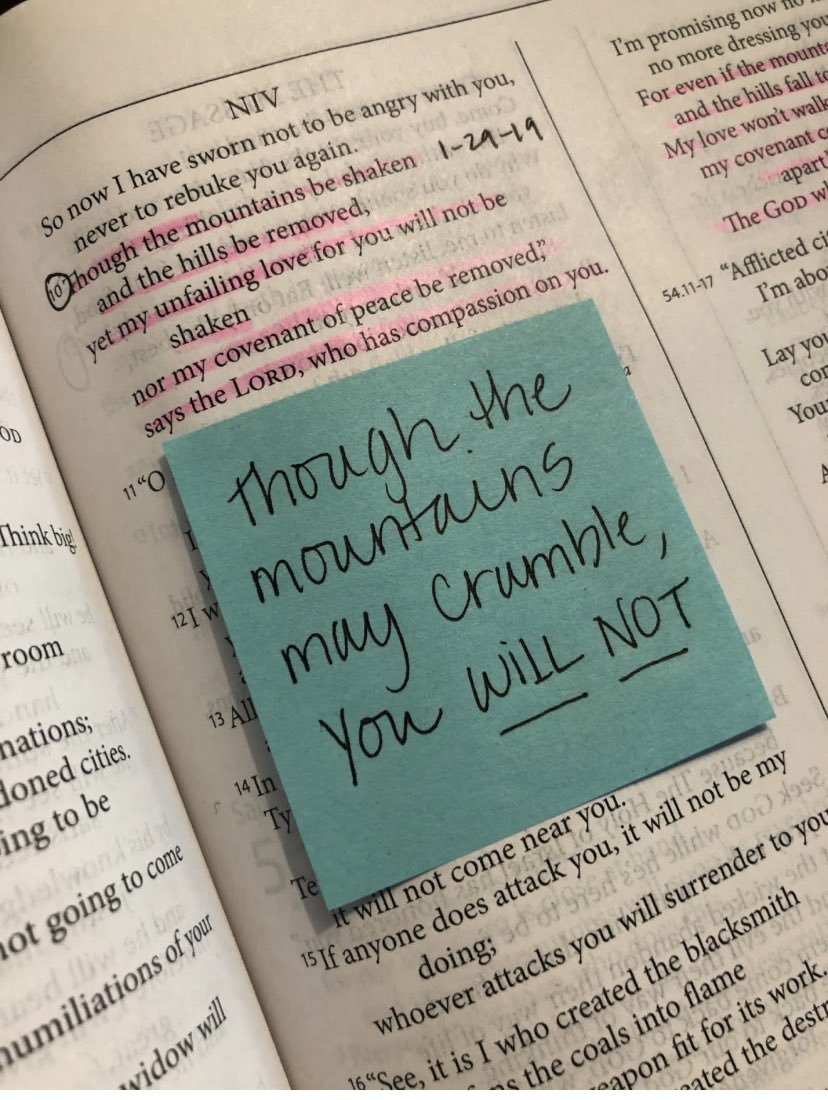 NIV
So now I have sworn not to be angry with you,
never to rebuke you again.
10 "Though the mountains be shaken 1-29-19
and the hills be removed,
yet my unfailing love for you will not be
shaken
nor my covenant of peace be removed,"
says the LORD, who has compassion on you.
11 "O
12 I w
13 All
14 In
Ty
Te
it will not come near you.
15 If anyone does attack you, it will not be my
doing;
whoever attacks you will surrender to you
16 "See, it is I who created the blacksmith
the coals into flame
weapon fit for its work.
created the destr
though the
mountains
may crumble,
you WiLL NOT
Think big!
room
nations;
ing to be
not going to come
humiliations of your
widow will
I'm promising now no
no more dressing you
For even if the mount
and the hills fall to
My love won't walk
my covenant c
apart
The GOD wh
54.11-17 "Afflicted ci
I'm abo
Lay you
con
Your